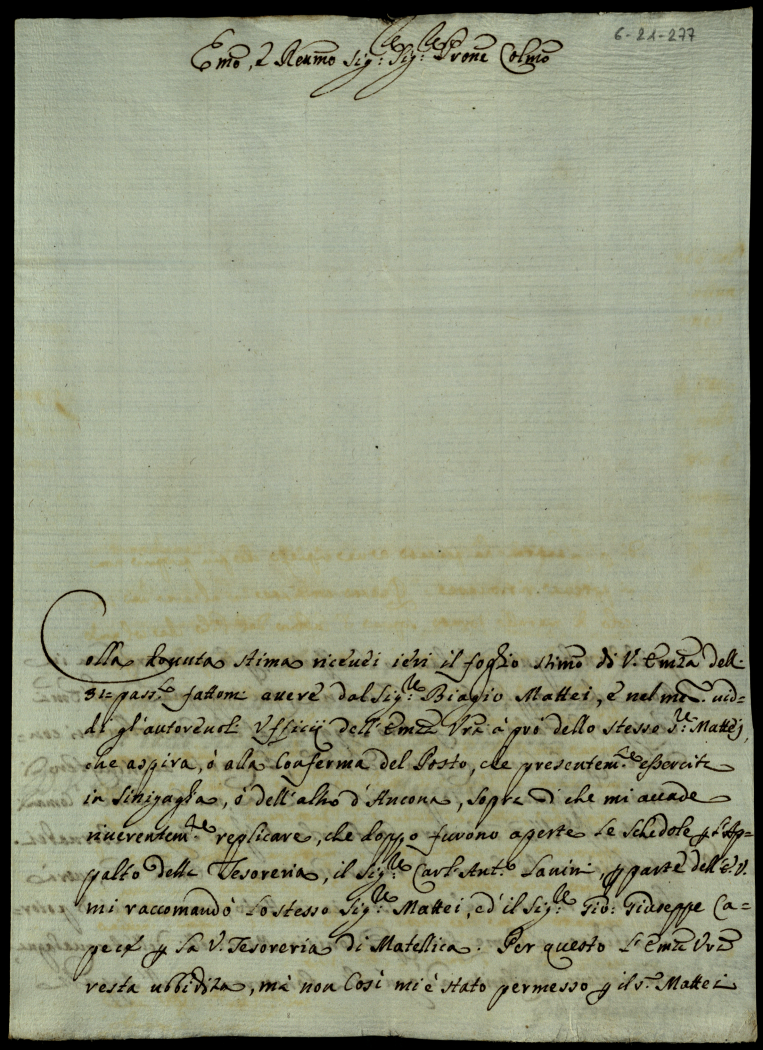 6-21-277
Emo, e Reumo Sigr: Sigr: Prone Colmo
Colla douuta stima riceuei ieri il foglio stimo di V. Emza dell-
31= passto fattomi auere dal Sigre Biagio Mattei, e nel mo. uid=
di gl'autoreuoli Vfficij dell'Emza Vra à prò dello stesso Sr. Mattej,
che aspira, ò alla Conferma del Posto, che presentemte essercita
in Sinigaglia, ò dell'altro d'Ancona, sopra di che mi accade
riuerentemte replicare, che doppo furono aperte le schedole p l'Ap=
palto della Tesoreria, il Sigre Carl'Anto. p parte dell'E. V.
mi raccomandò lo stesso Sigre Mattei, ed il Sigre Gio: Giuseppe Ca=
p la V. Tesoreria di Matellica. Per questo l'Emza Vra
resta ubbidita, mà non Così mi è stato permesso p il Sr. Mattei